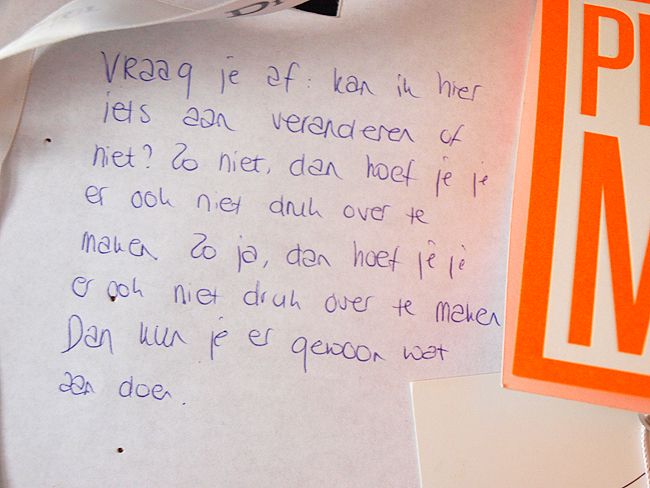 Di
Vraag je af: kan ik hier
iets aan veranderen of
niet? Zo niet, dan hoef je je
er ook niet druk over te
maken Zo ja, dan hoef je je
er ook niet druk over te maken
Dan kun je er gewoon wat
aan doen.
P
M